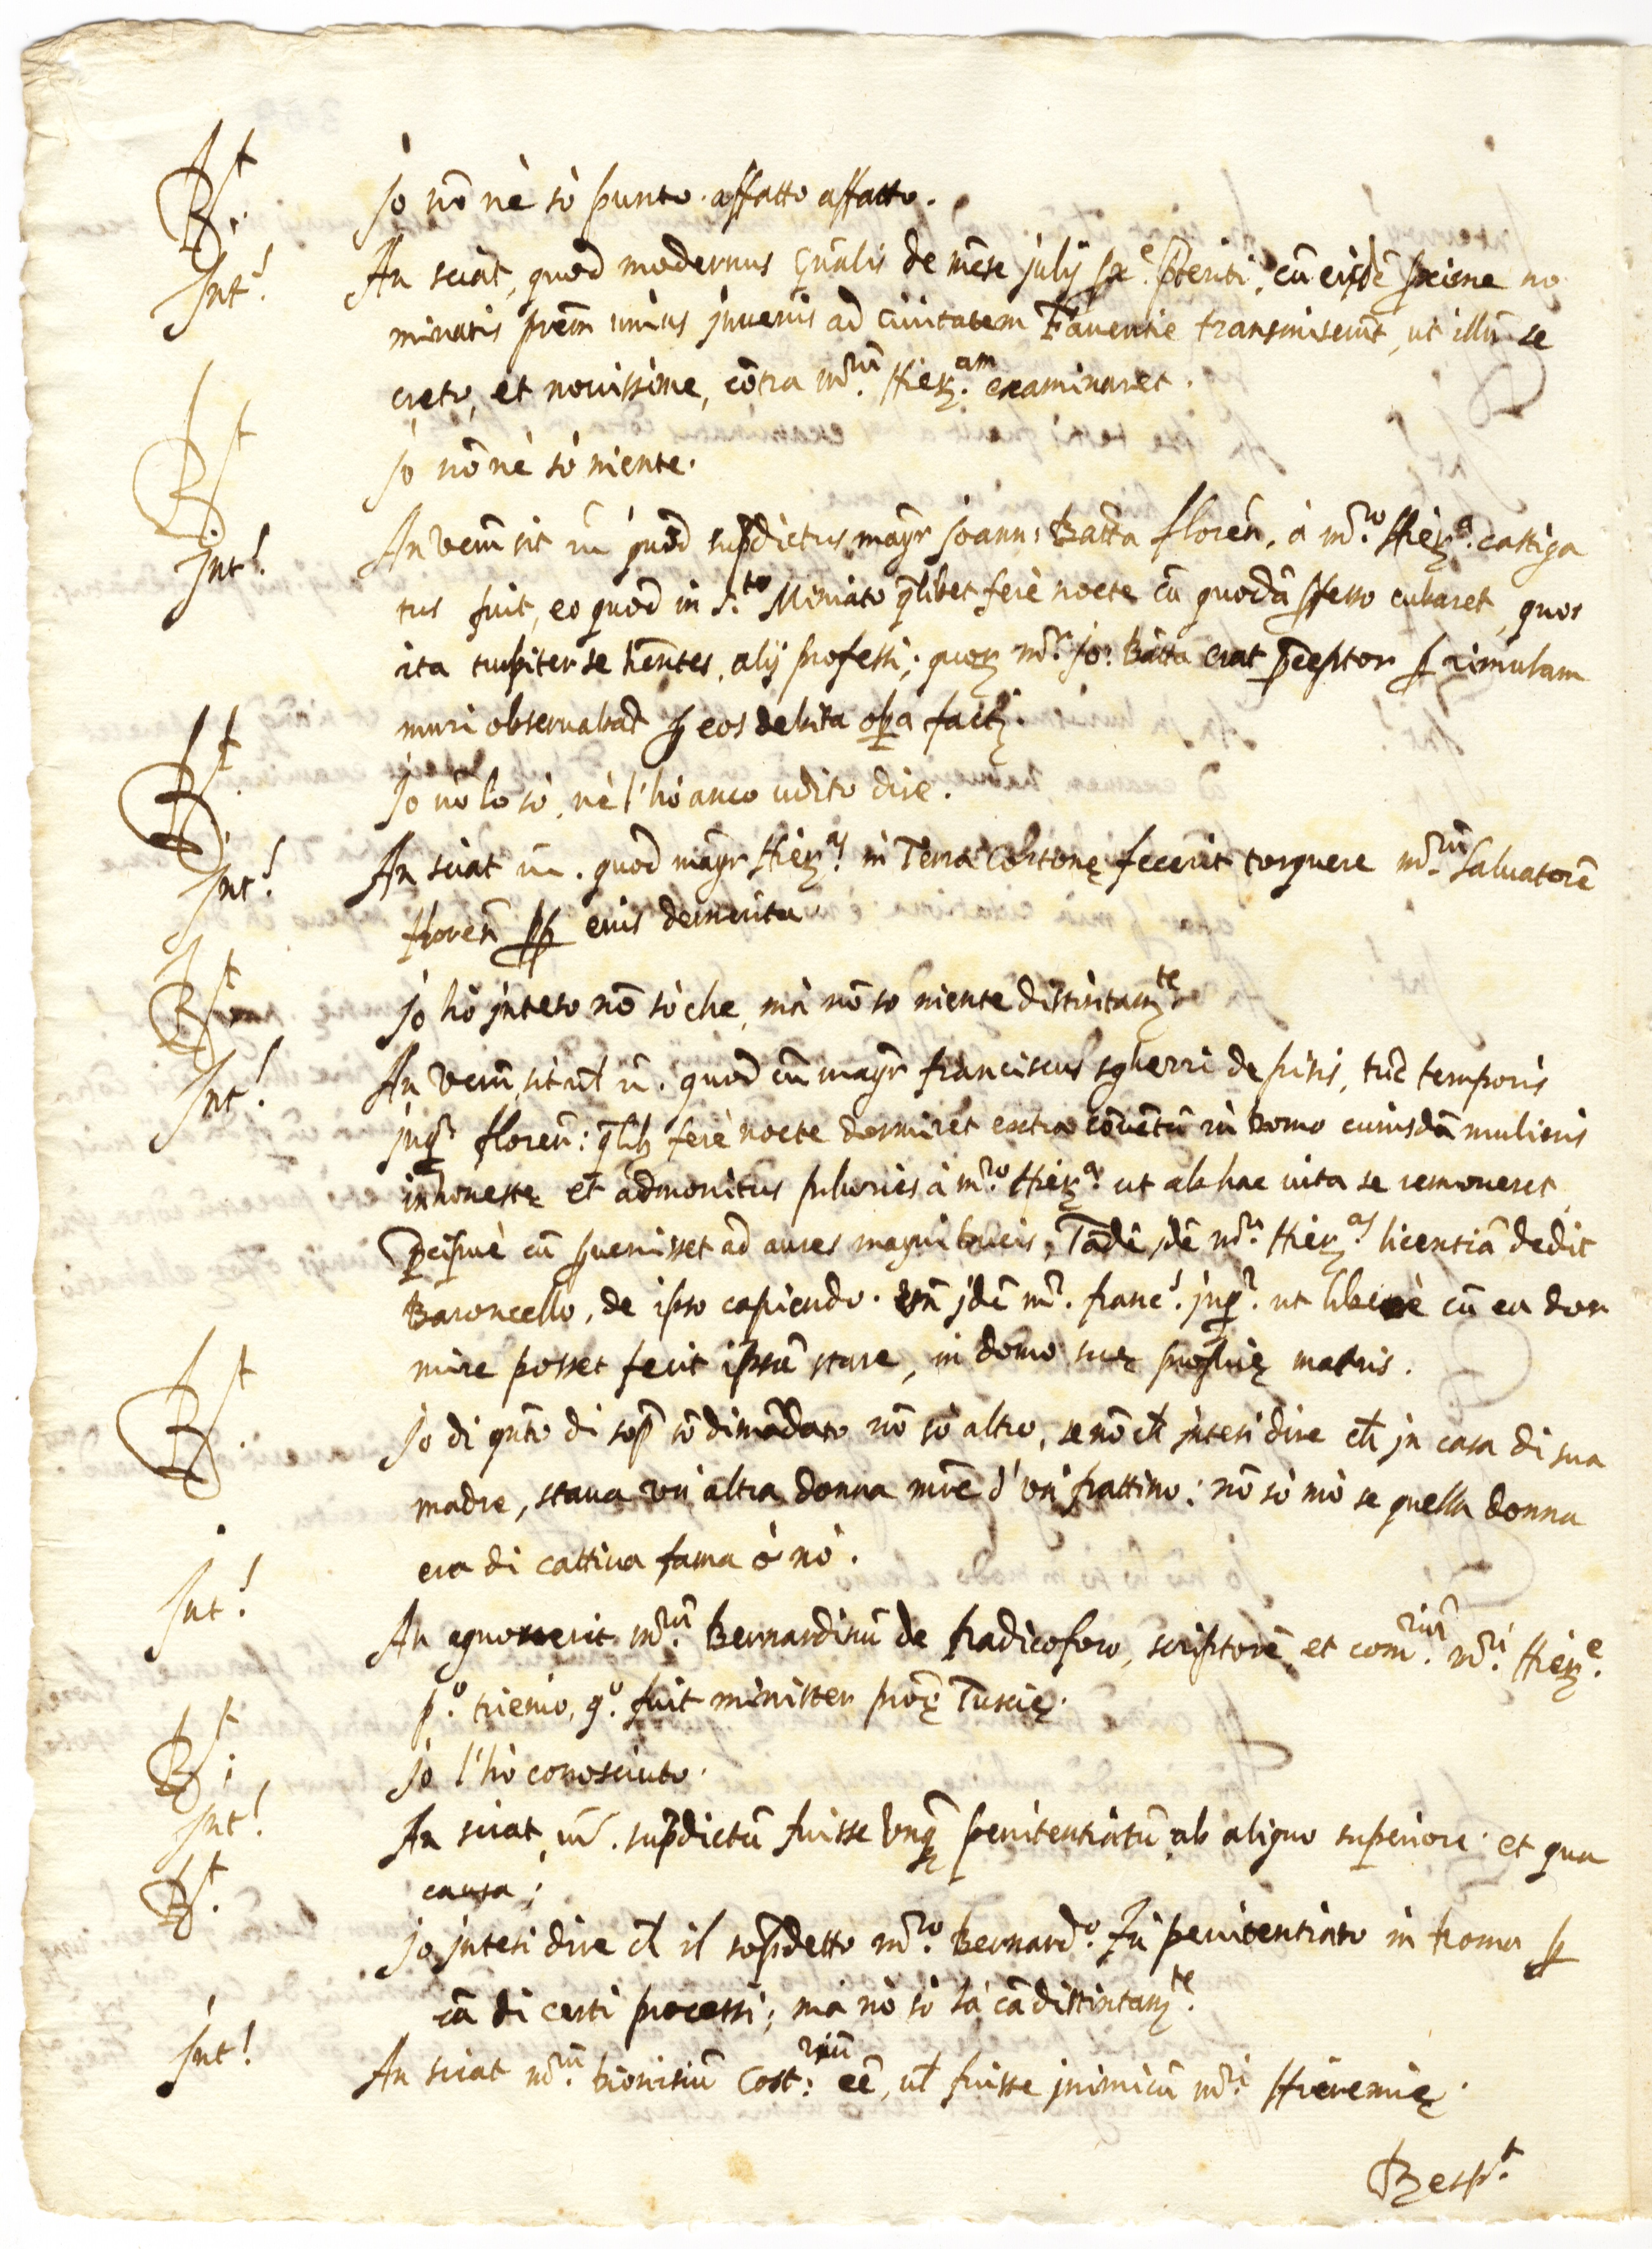 R.t Io nõ nè sò punto affatto affatto.
Int.! An sciat, quod modernus gñalis de mẽse julij px.e pteriti, cũ eisdẽ pxime no
minatis prem unius juvenis ad civitatem Faventie transmiserit, ut illũ se
creto, et novissime, cõtra m.rum Hier.am examinaret.
R.t Io nõ nè sò niente.
Int.! An verũ sit quod supdictus magr Joann: Batta floreñ. à m.ro Hier.a castiga
tus fuit, eo quod in S.to Miniato qlibet ferè nocte cũ quodã pfesso cubaret, quos
ita turpiter se hẽntes, alij professi; quor m.r Jo: Batta erat pceptor p rimulam
muri observabat p eos debita opa facta.
R.t Io nõ lo sò, nè l'hò anco udito dire.
Int.! An sciat quod magr Hier.as in Terra Cortonę fecerit torquere m.rum Salvatorẽ
floreñ pp eius demerita.
R.t Io hò inteso nõ sò che, mà nõ so niente distintam.te
Int.! An verũ sit quod cũ magr franciscus sgherri de pisis, tũc temporis
inq.r floreñ: qlib ferè nocte dormiret extra cõvẽtũ in domo cuiusdã mulieris
inhonestę et admonitus pluries à m.ro Hier.a ut ab hac vita se removeret,
pcipuè cũ pvenisset ad aures magni Ducis; Tãdẽ idẽ m.r Hier.as licentiã dedit
Baroncello, de ipso capiendo. jdẽ m.r franc.s jnq.r ut liberè cũ ea dor
mire posset fecit ipsã stare, in domo suę proprię matris.
R.t Io di qñto di sop sõ dimãdato nõ sò altro, se nõ ch intesi dire ch in casa di sua
madre, stava un altra donna mrẽ d'un frattino; nõ sò mò se quella donna
era di cattiva fama ò nò.
Int.! An agnoverit m.rum Bernardinũ de Radicoforo, scriptorẽ et com.rium m.ri Hier.e
p.o trienio, q.o fuit minister provę Tuscię.
R.t Io l'hò conosciuto.
Int.! An sciat supdictũ fuisse unq penitentiatũ ab aliquo superiore et qua
R.t causa;
Io intesi dire ch il sopdetto m.ro Bernard.o fù penitentiato in Roma p
cã di certi processi; ma nõ sò la cã distintam.te
Int.! An sciat m.rum Dionisiũ Cost.rium eẽ, ul fuisse jnimicũ m.ri Hieremię.
Resp.t